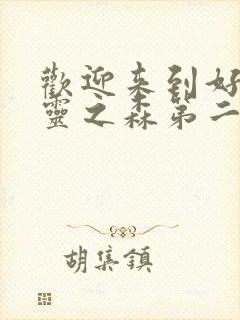 歡迎来到好
靈之森第二
胡集鎮